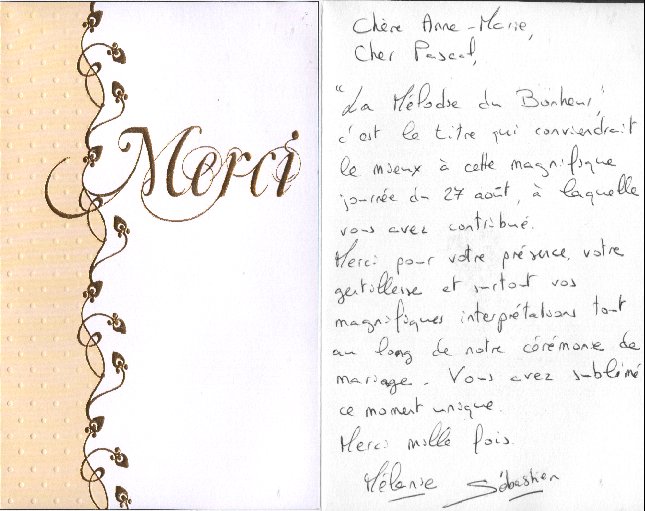 Merci
Chère Anne-Marie,
Cher Pascal,
"La Mélodie du Bonheur",
c'est le titre qui conviendrait
le mieux à cette magnifique
journée du 27 août, à laquelle
vous avez contribué.
Merci pour votre présence, votre
gentillesse et surtout vos
magnifiques interprétations tout
au long de notre cérémonie de
mariage. Vous avez sublimé
ce moment unique.
Merci mille fois.
Mélanie Sébastien